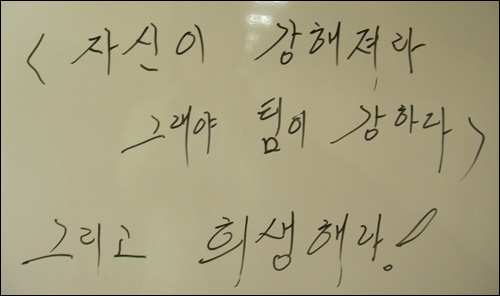 < 자신이 강해져라
그래야 팀이 강하다 >
그리고 희생해라!